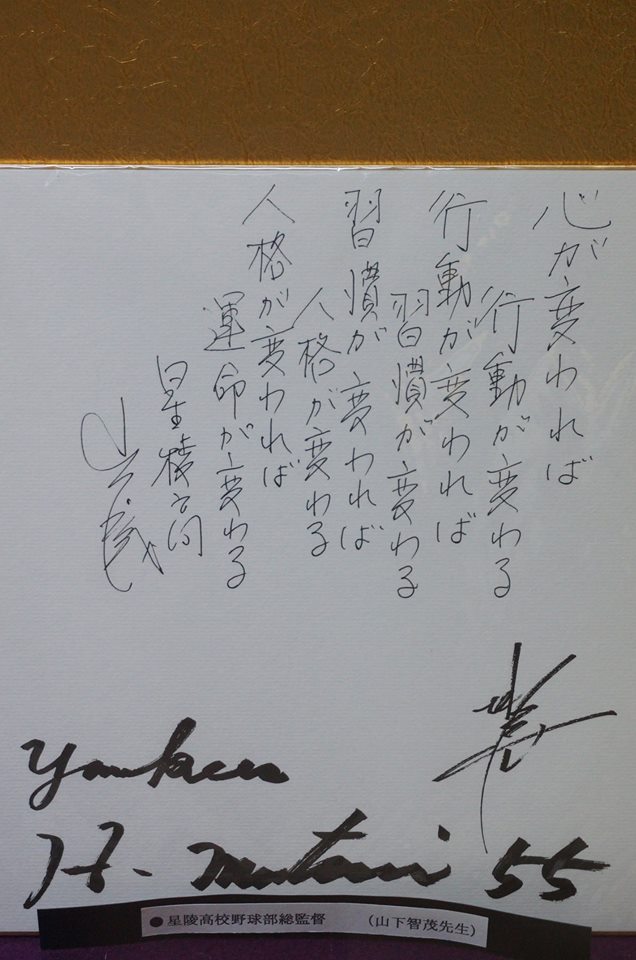 心が変われば
行動が変わる
行動が変われば
習慣が変わる
習慣が変われば
人格が変わる
人格が変われば
運命が変わる
星稜高
Yankees
H. Matsui 55
●星陵高校野球部総監督 (山下智茂先生)